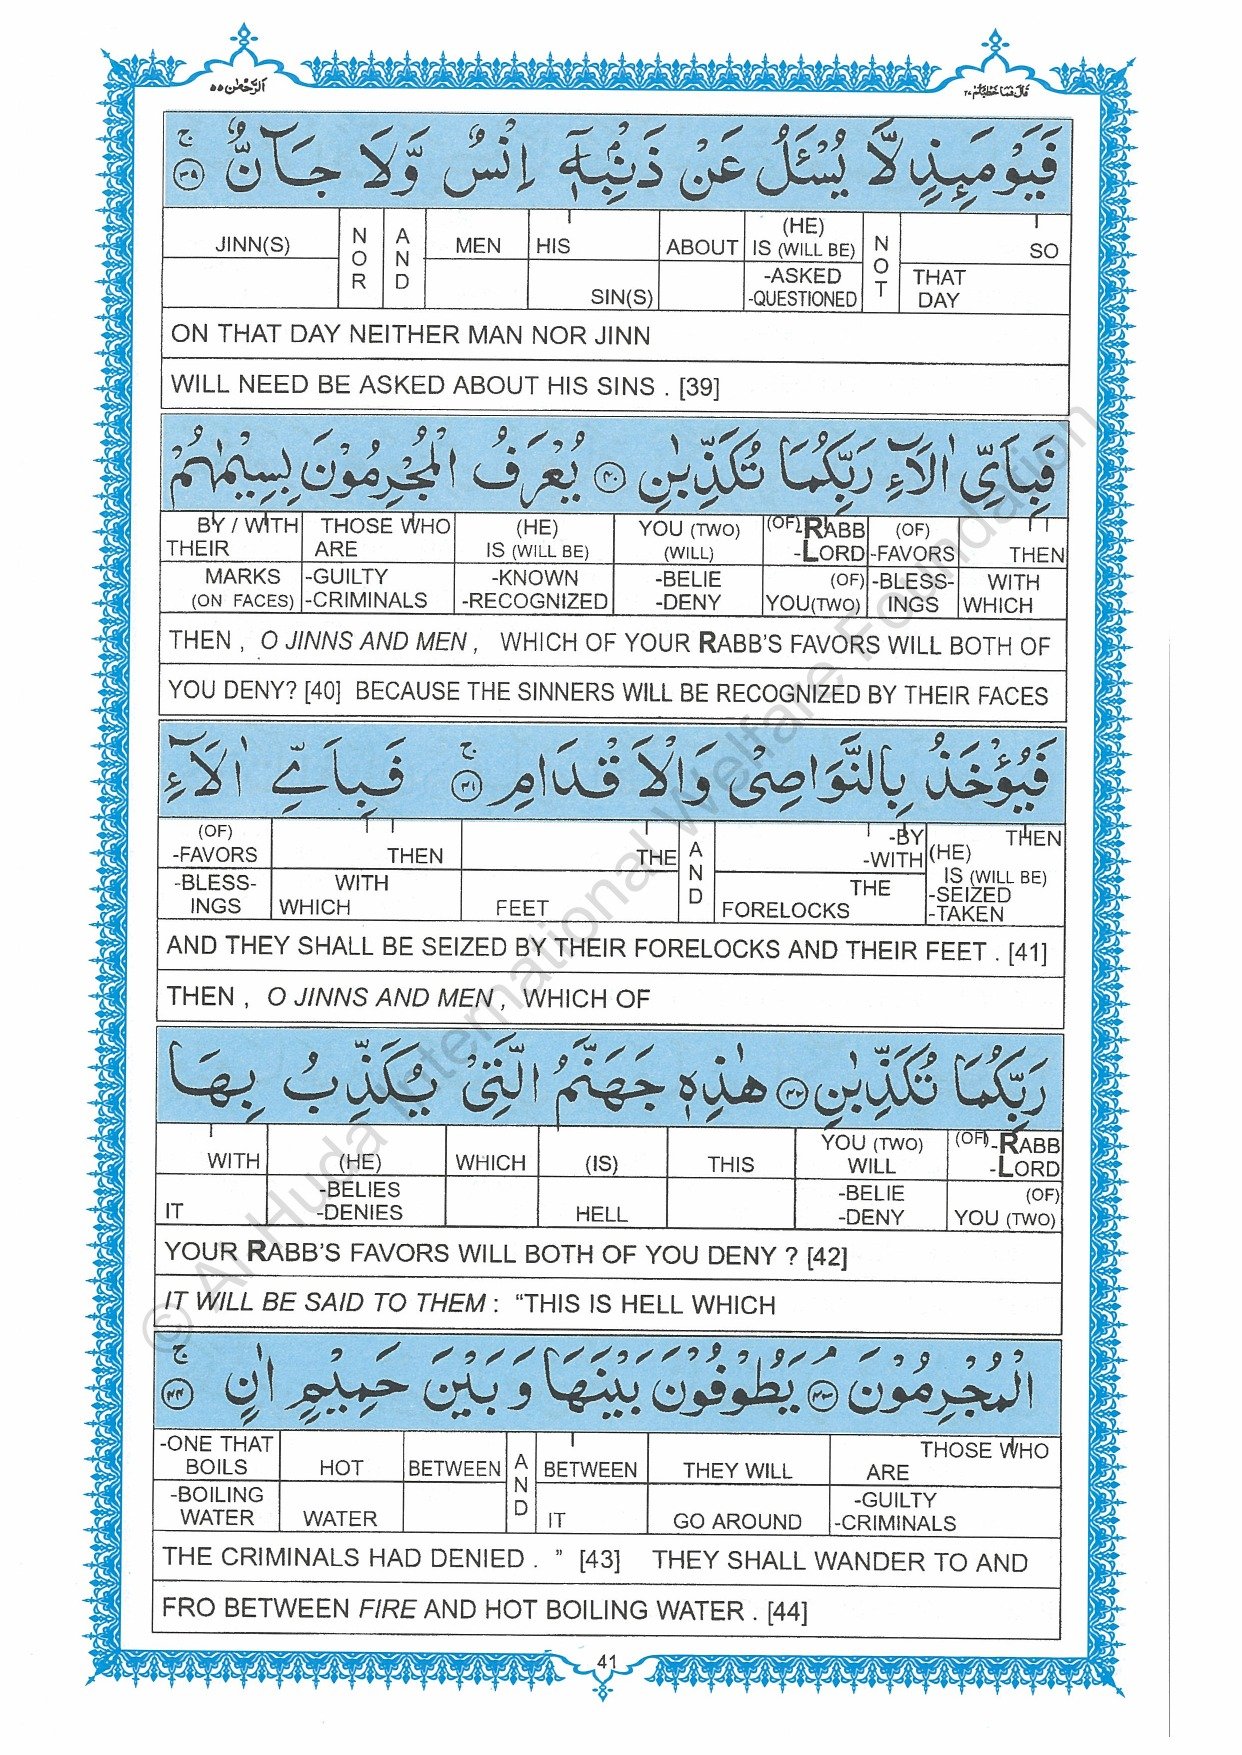 اَلرَّحْمٰن ٥٥
قَالَ فَمَا خَطْبُكُمْ ٢٧
فَيَوْمَئِذٍ لَّا يُسْـَٔلُ عَنْ ذَنْۢبِهٖۤ اِنْسٌ وَّلَا جَآنٌّ ۚ ﴿٣٩﴾
JINN(S) NOR AND MEN HIS ABOUT (HE) IS (WILL BE) NOT SO
SIN(S) -ASKED -QUESTIONED THAT DAY
ON THAT DAY NEITHER MAN NOR JINN
WILL NEED BE ASKED ABOUT HIS SINS . [39]
فَبِاَيِّ اٰلَآءِ رَبِّكُمَا تُكَذِّبٰنِ ﴿٤٠﴾ يُعْرَفُ الْمُجْرِمُوْنَ بِسِيْمٰهُمْ
BY / WITH THEIR THOSE WHO ARE (HE) IS (WILL BE) YOU (TWO) (WILL) (OF)-RABB -LORD (OF) -FAVORS THEN
MARKS (ON FACES) -GUILTY -CRIMINALS -KNOWN -RECOGNIZED -BELIE -DENY (OF) YOU(TWO) -BLESS- INGS WITH WHICH
THEN , O JINNS AND MEN , WHICH OF YOUR RABB'S FAVORS WILL BOTH OF
YOU DENY? [40] BECAUSE THE SINNERS WILL BE RECOGNIZED BY THEIR FACES
فَيُؤْخَذُ بِالنَّوَاصِيْ وَالْاَقْدَامِ ۚ ﴿٤١﴾ فَبِاَيِّ اٰلَآءِ
(OF) -FAVORS THEN THE AND -BY -WITH THEN (HE) IS (WILL BE)
-BLESS- INGS WITH WHICH FEET THE FORELOCKS -SEIZED -TAKEN
AND THEY SHALL BE SEIZED BY THEIR FORELOCKS AND THEIR FEET . [41]
THEN , O JINNS AND MEN , WHICH OF
رَبِّكُمَا تُكَذِّبٰنِ ﴿٤٢﴾ هٰذِهٖ جَهَنَّمُ الَّتِيْ يُكَذِّبُ بِهَا
WITH (HE) WHICH (IS) THIS YOU (TWO) WILL (OF)-RABB -LORD
IT -BELIES -DENIES HELL -BELIE -DENY (OF) YOU (TWO)
YOUR RABB'S FAVORS WILL BOTH OF YOU DENY ? [42]
IT WILL BE SAID TO THEM : “THIS IS HELL WHICH
الْمُجْرِمُوْنَ ﴿٤٣﴾ يَطُوْفُوْنَ بَيْنَهَا وَبَيْنَ حَمِيْمٍ اٰنٍ ۚ ﴿٤٤﴾
-ONE THAT BOILS HOT BETWEEN AND BETWEEN THEY WILL THOSE WHO ARE
-BOILING WATER WATER IT GO AROUND -GUILTY -CRIMINALS
THE CRIMINALS HAD DENIED . ” [43] THEY SHALL WANDER TO AND
FRO BETWEEN FIRE AND HOT BOILING WATER . [44]
41
© Al Huda International Welfare Foundation